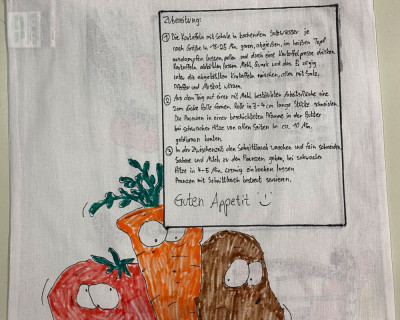 Zubereitung:
① Die Kartoffeln mit Schale in kochendem Salzwasser je
nach Größe in 18-25 Min. garen, abgießen, im heißen Topf
ausdampfen lassen, pellen und durch eine Kartoffelpresse drücken.
Kartoffeln abkühlen lassen. Mehl, Grieß und das Ei zügig
unter die abgekühlten Kartoffeln mischen, alles mit Salz,
Pfeffer und Muskat würzen.
② Aus dem Teig auf einer mit Mehl bestäubten Arbeitsfläche eine
2cm dicke Rolle formen. Rolle in 3-4 cm lange Stücke schneiden.
Die Pranzen in einer beschichteten Pfanne in der Butter
bei schwacher Hitze von allen Seiten in ca. 10 Min.
goldbraun braten.
③ In der Zwischenzeit den Schnittlauch waschen und fein schneiden.
Sahne und Milch zu den Pranzen geben, bei schwacher
Hitze in 4-5 Min. cremig einkochen lassen
Pranzen mit Schnittlauch bestreut servieren.
Guten Appetit